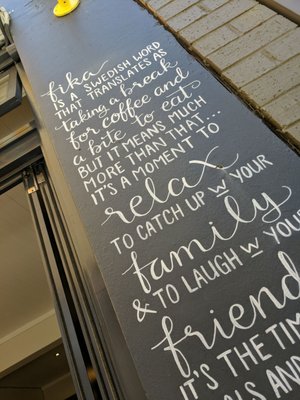 fika
IS A SWEDISH WORD
THAT TRANSLATES AS
taking a break
for coffee and
a bite to eat
BUT IT MEANS MUCH
MORE THAN THAT...
IT'S A MOMENT TO
relax
TO CATCH UP W YOUR
family
& TO LAUGH W YOUR
friend
IT'S THE TIM